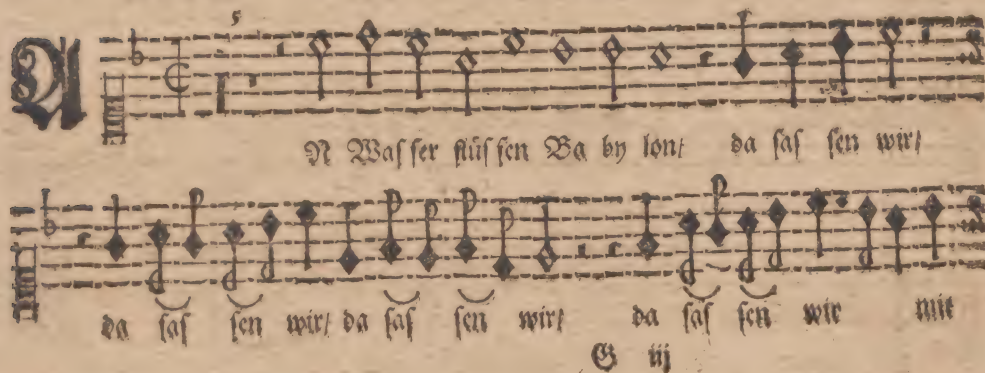 5
AN Waſ ſer flüſ ſen Ba by lon/ da ſaſ ſen wir/
da ſaſ ſen wir/ da ſaſ ſen wir/ da ſaſ ſen wir mit
G iij